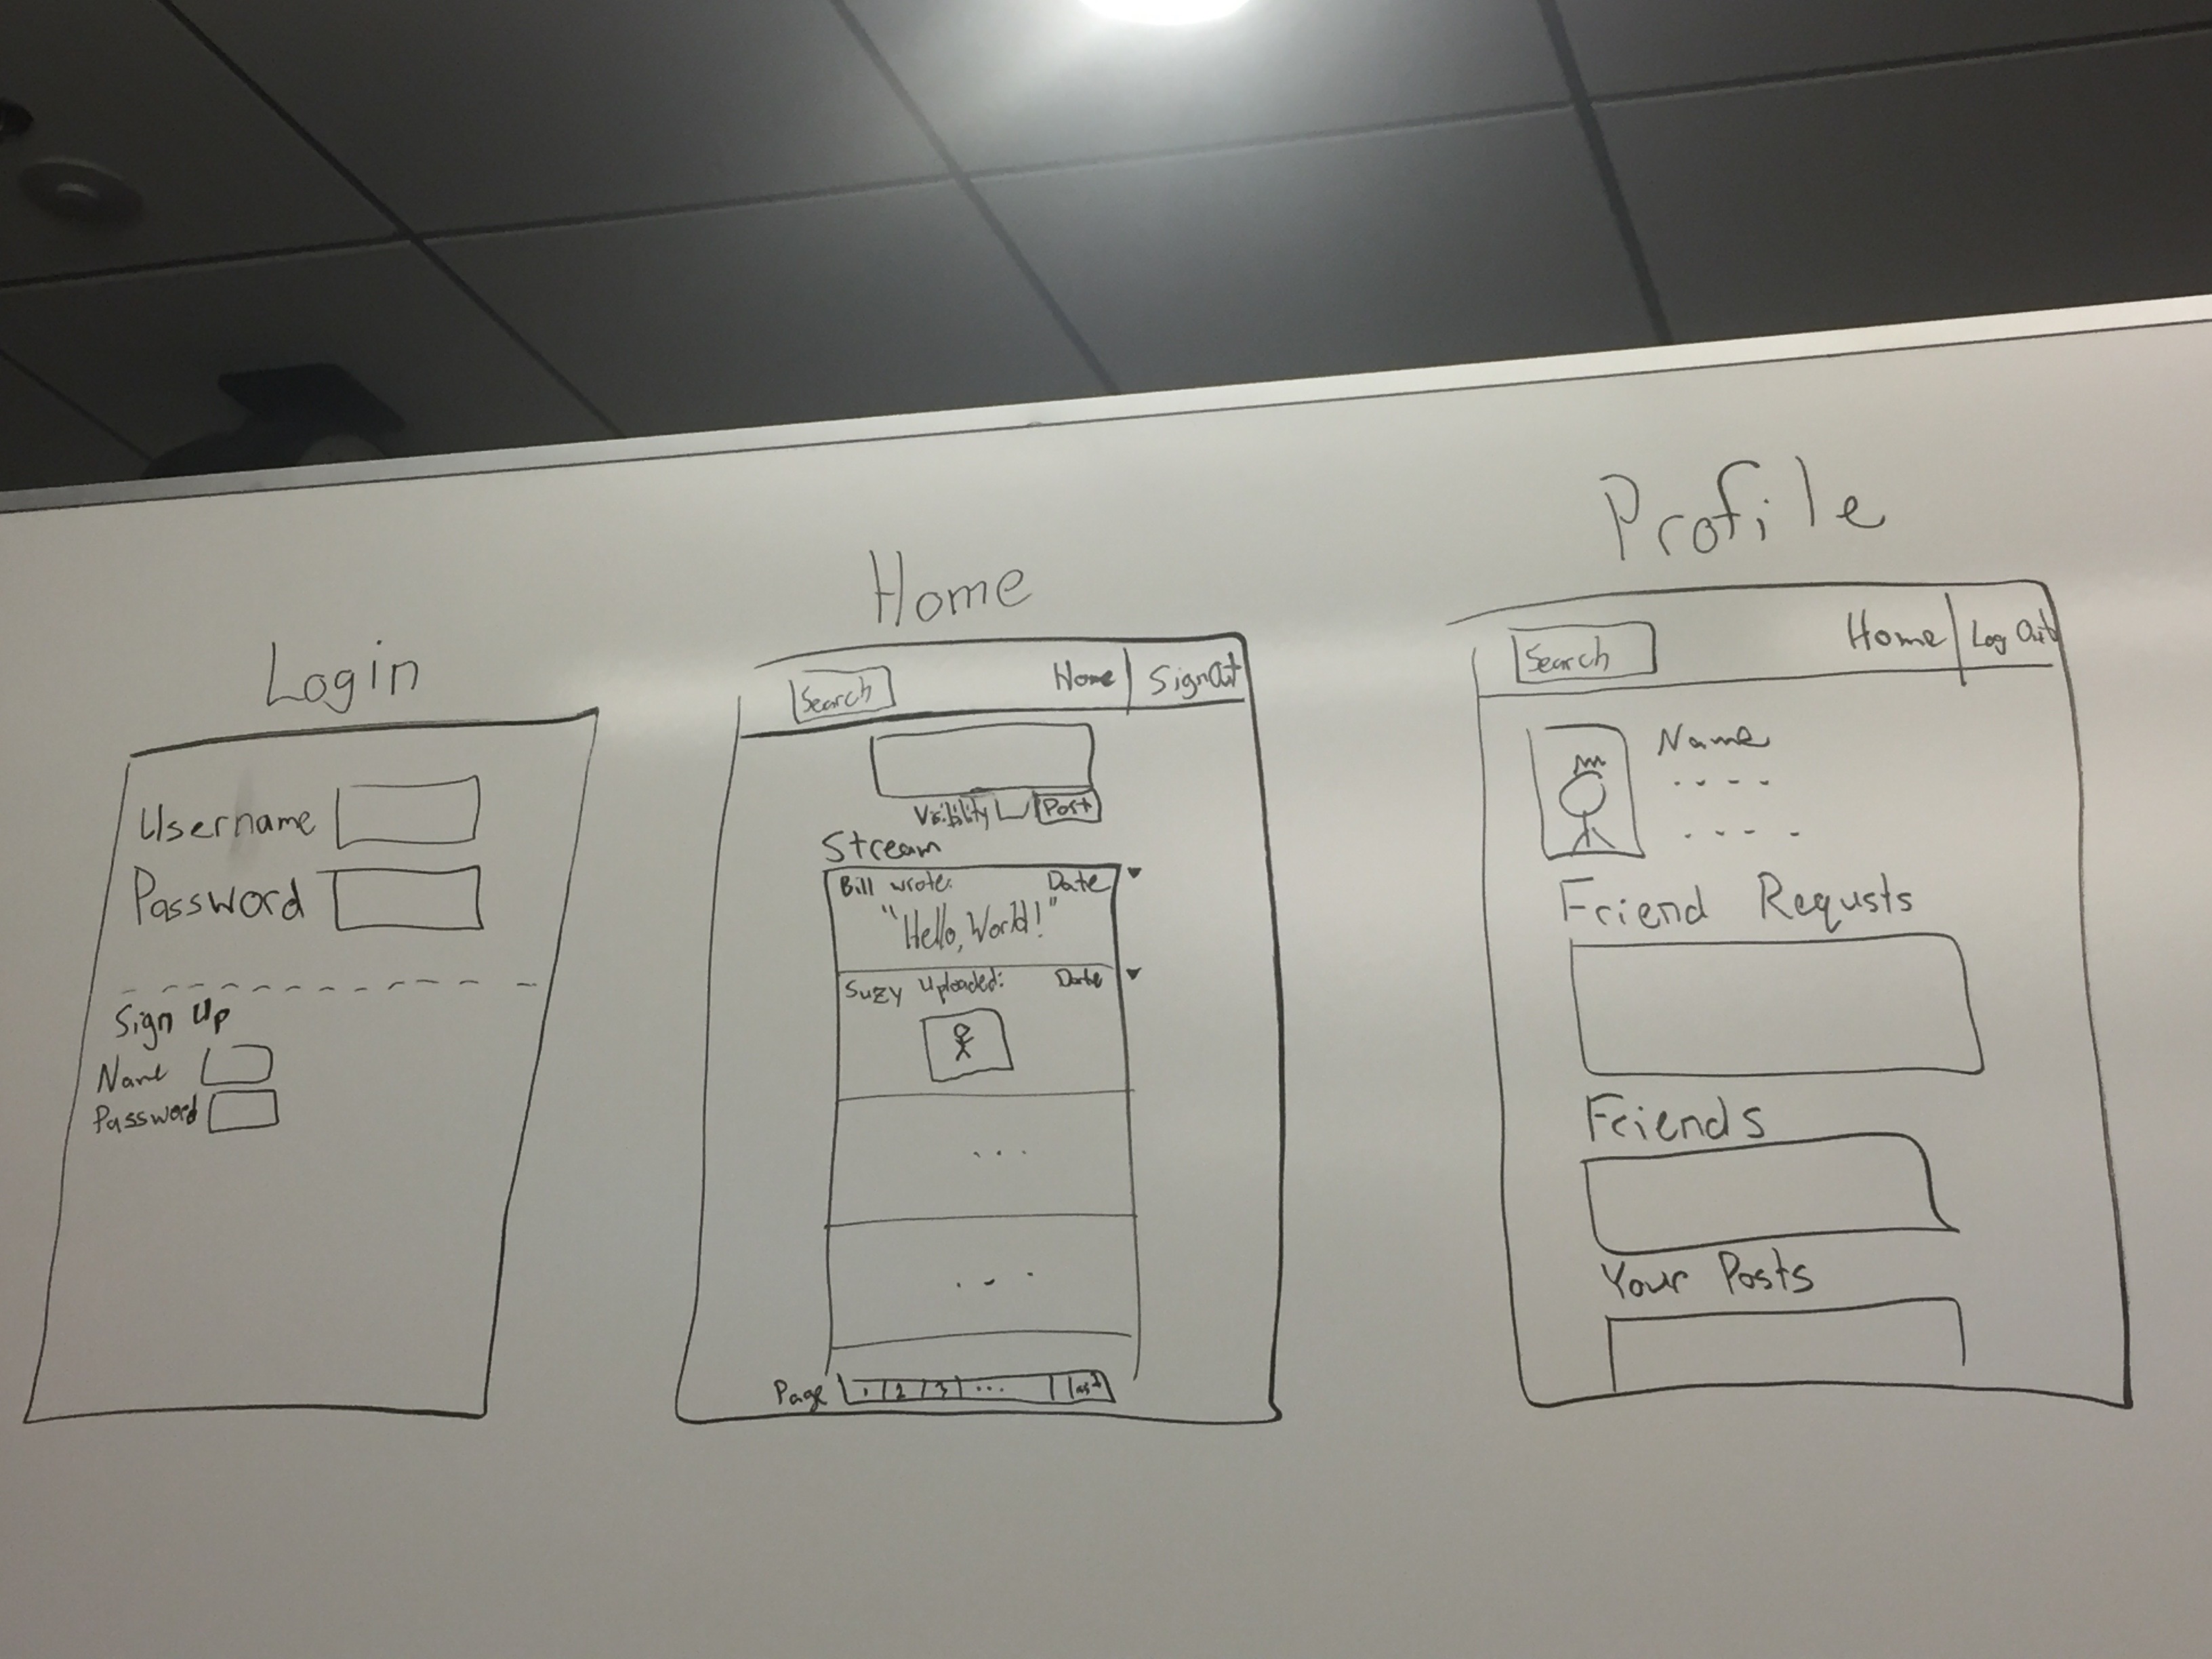 Login
Username
Password
Sign Up
Name
Password
Home
Search Home Sign Out
Visibility Post
Stream
Bill wrote: Date
"Hello, World!"
Suzy Uploaded: Date
...
...
Page 1 2 3 ... last
Profile
Search Home Log Out
Name
- - - -
- - - -
Friend Requsts
Friends
Your Posts